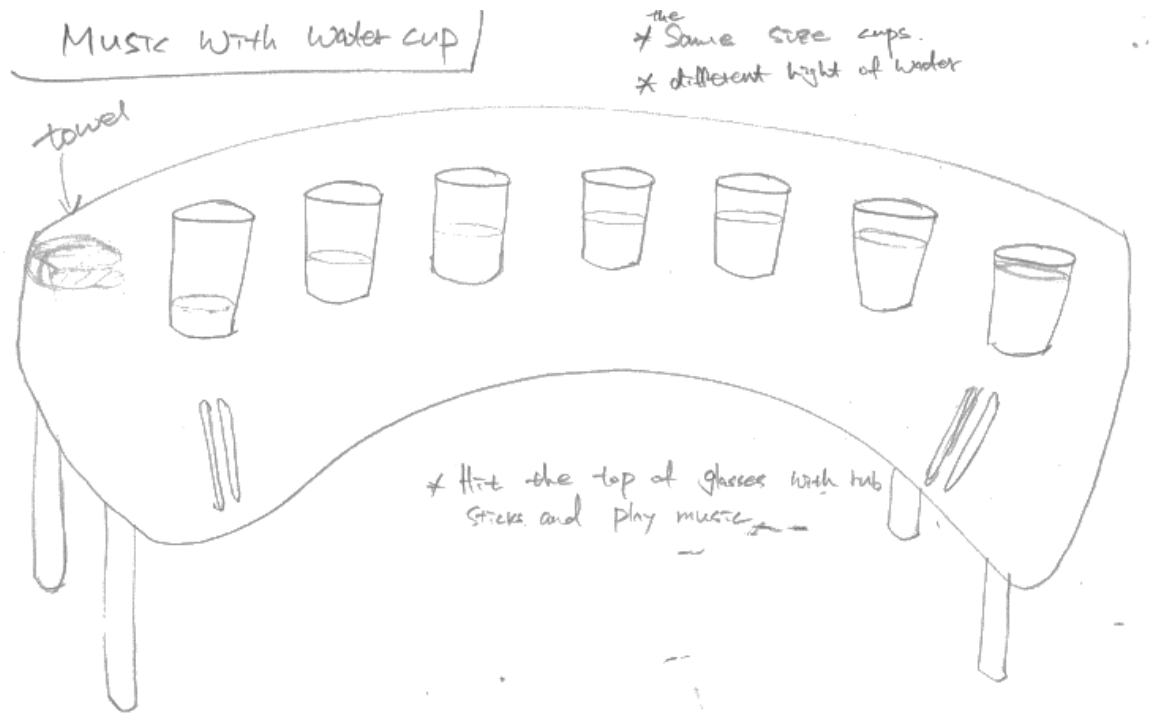 Music with water cup
the
* Same size cups.
* different hight of water
towel
* Hit the top of glasses with rub
sticks and play music